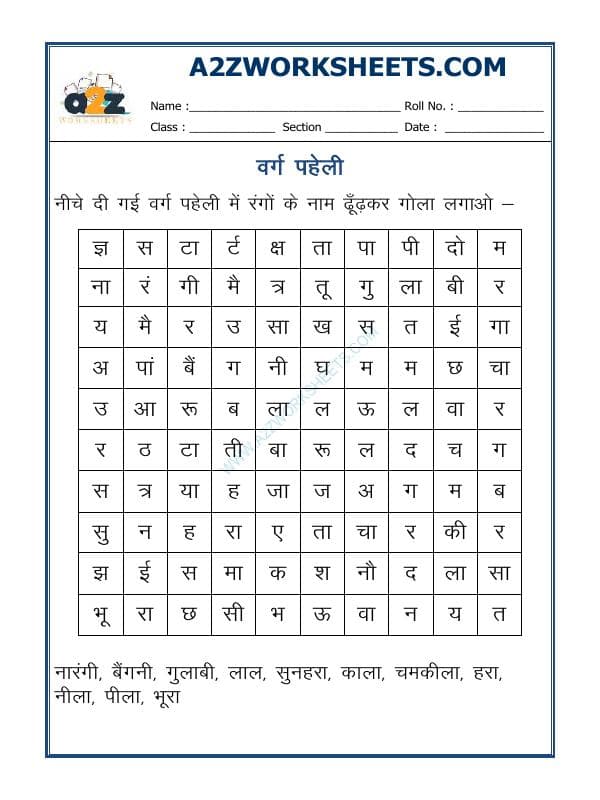 A2ZWORKSHEETS.COM
a2z
WORKSHEETS
Name :______________________________ Roll No. : ____________
Class : ____________ Section __________ Date : ______________
वर्ग पहेली
नीचे दी गई वर्ग पहेली में रंगों के नाम ढूँढ़कर गोला लगाओ –
ज्ञ स टा र्ट क्ष ता पा पी दो म
ना रं गी मै त्र तू गु ला बी र
य मै र उ सा ख स त ई गा
अ पां बैं ग नी घ म म छ चा
उ आ रू ब ला ल ऊ ल वा र
र ठ टा ती बा रू ल द च ग
स त्र या ह जा ज अ ग म ब
सु न ह रा ए ता चा र की र
झ ई स मा क श नौ द ला सा
भू रा छ सी भ ऊ वा न य त
WWW.A2ZWORKSHEETS.COM
नारंगी, बैंगनी, गुलाबी, लाल, सुनहरा, काला, चमकीला, हरा,
नीला, पीला, भूरा